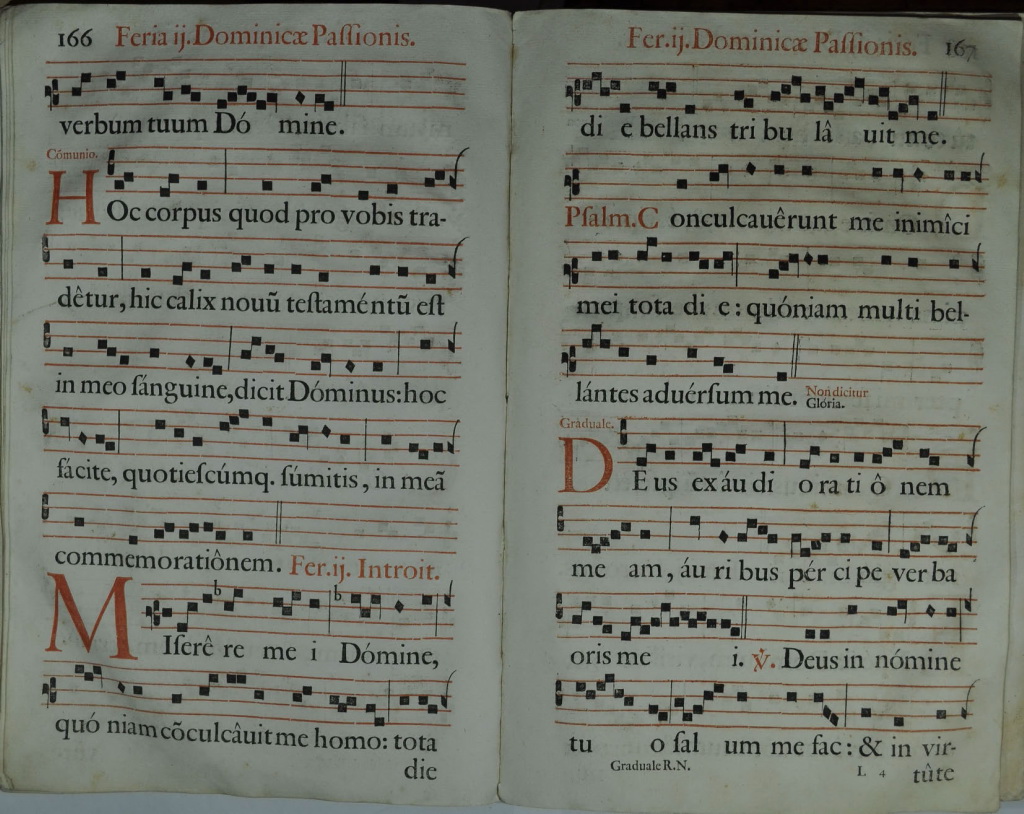 166 Feria ij. Dominicæ Paſſionis.
verbum tuum Dó mine.
Cómunio.
HOc corpus quod pro vobis tra-
dêtur, hic calix nouũ teſtaméntũ eſt
in meo ſánguine, dicit Dóminus: hoc
fácite, quotieſcúmq. ſúmitis, in meã
commemoratiônem. Fer.ij. Introit.
MIſerê re me i Dómine,
quó niam cõculcâuit me homo: tota
die
Fer.ij. Dominicæ Paſſionis. 167
di e bellans tri bu lâ uit me.
Pſalm. C onculcauêrunt me inimîci
mei tota di e: quóniam multi bel-
lántes aduérſum me. Non dicitur
Glória.
Graduale.
DEus exáu di o ra ti ô nem
me am, áu ri bus pér ci pe ver ba
oris me i. ℣. Deus in nómine
tu o ſal um me fac: & in vir-
Graduale R.N. L 4 tûte